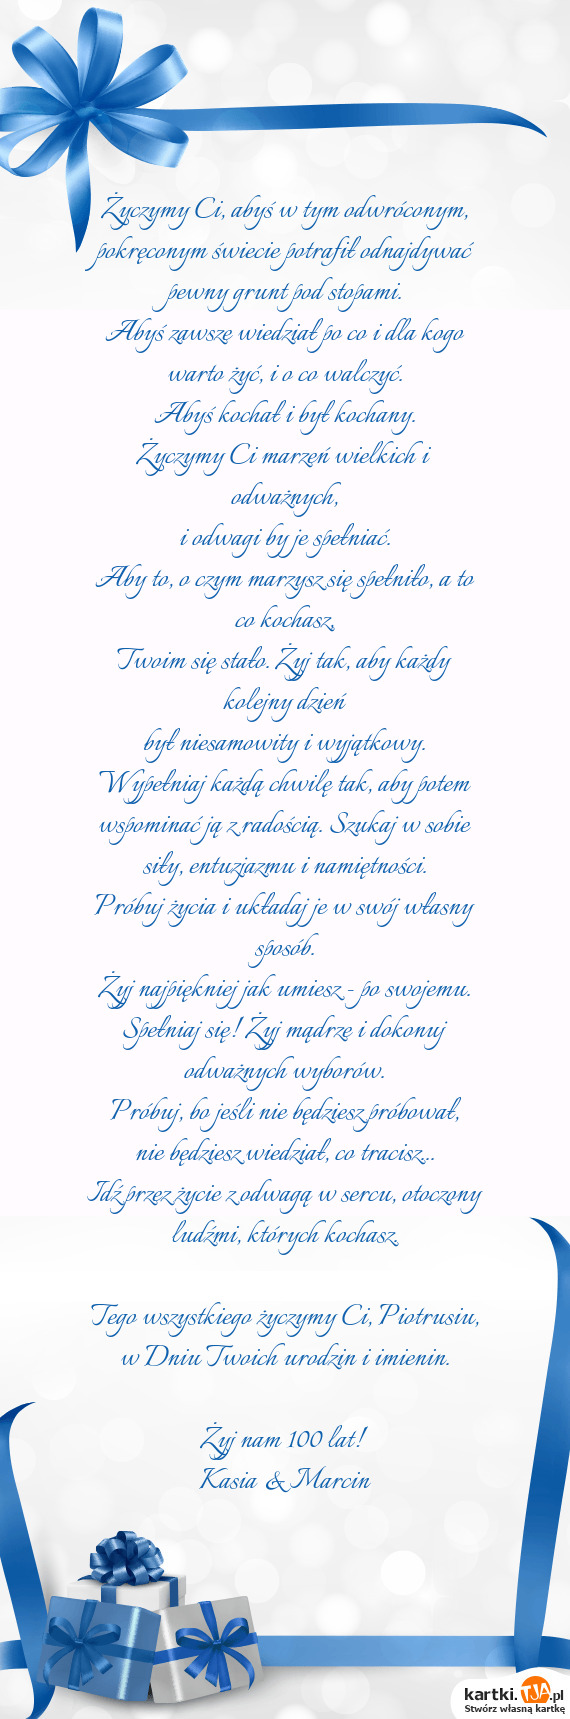 Życzymy Ci, abyś w tym odwróconym,
pokręconym świecie potrafił odnajdywać
pewny grunt pod stopami.
Abyś zawsze wiedział po co i dla kogo
warto żyć, i o co walczyć.
Abyś kochał i był kochany.
Życzymy Ci marzeń wielkich i
odważnych,
i odwagi by je spełniać.
Aby to, o czym marzysz się spełniło, a to
co kochasz,
Twoim się stało. Żyj tak, aby każdy
kolejny dzień
był niesamowity i wyjątkowy.
Wypełniaj każdą chwilę tak, aby potem
wspominać ją z radością. Szukaj w sobie
siły, entuzjazmu i namiętności.
Próbuj życia i układaj je w swój własny
sposób.
Żyj najpiękniej jak umiesz - po swojemu.
Spełniaj się! Żyj mądrze i dokonuj
odważnych wyborów.
Próbuj, bo jeśli nie będziesz próbował,
nie będziesz wiedział, co tracisz...
Idź przez życie z odwagą w sercu, otoczony
ludźmi, których kochasz.
Tego wszystkiego życzymy Ci, Piotrusiu,
w Dniu Twoich urodzin i imienin.
Żyj nam 100 lat!
Kasia & Marcin
kartki.TJA.pl
Stwórz własną kartkę